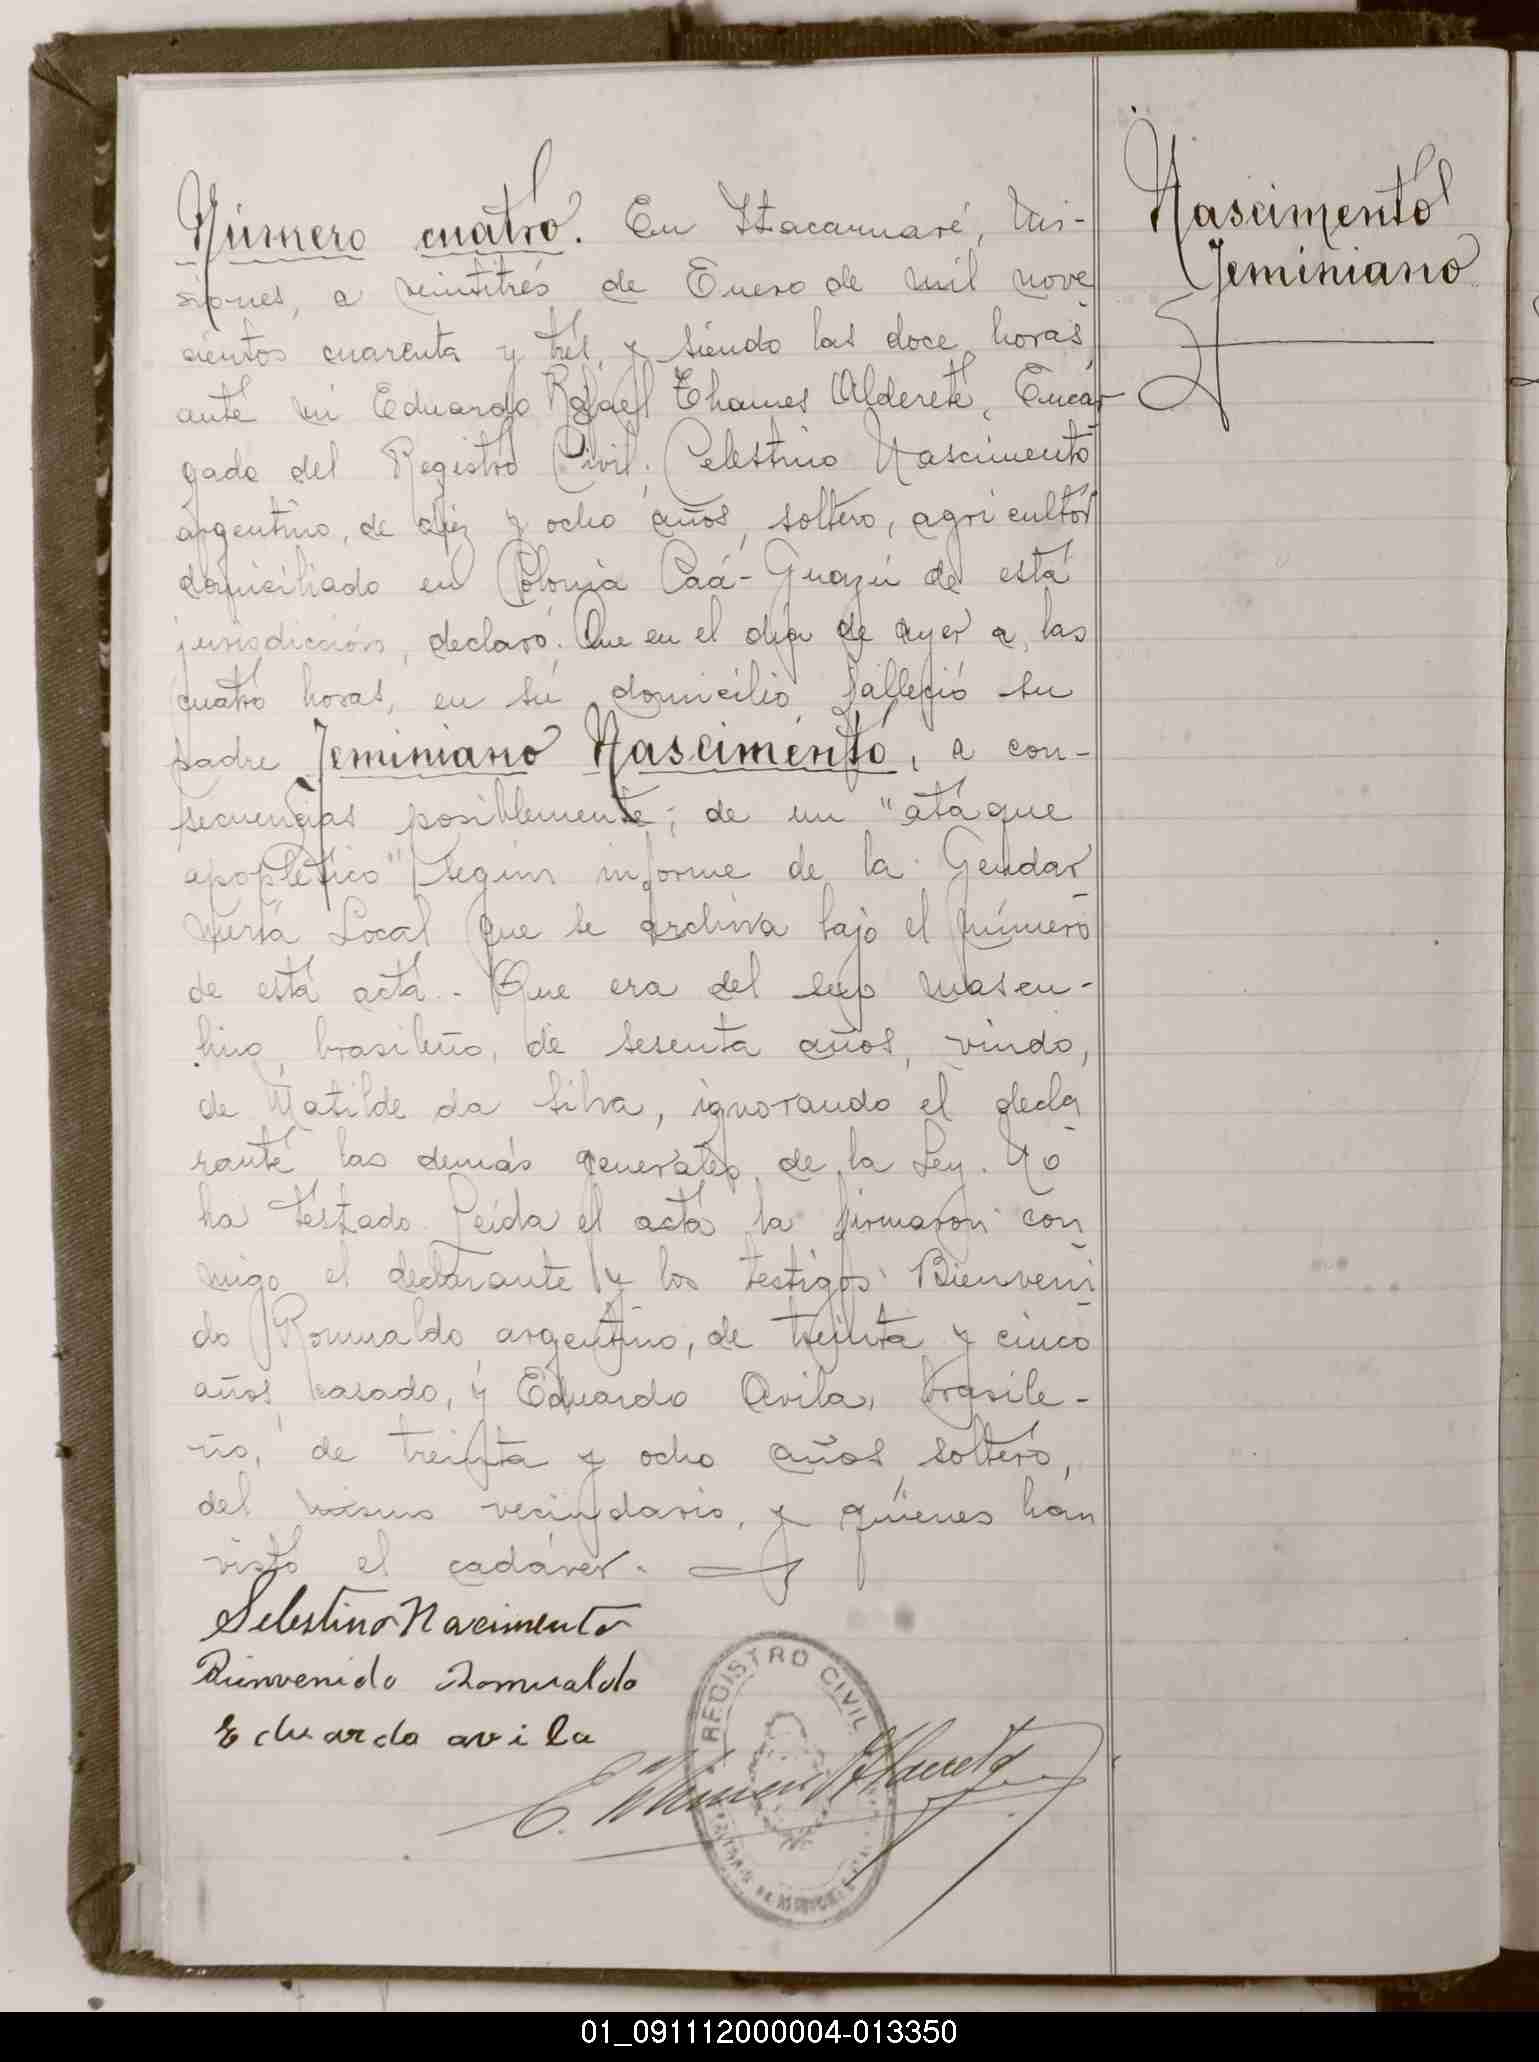 Número cuatro. En Itacaruaré, Mi-
siones, a veintitrés de Enero de mil nove
cientos cuarenta y tres, y siendo las doce horas,
ante mi Eduardo Rafael Thames Alderete, Encar
gado del Registro Civil; Celestino Nascimento
argentino, de diez y ocho años, soltero, agricultor
domiciliado en Colonia Caá-Guazú de esta
jurisdicción, declaró: Que en el día de ayer a las
cuatro horas, en su domicilio, falleció su
padre Jeminiano Nascimento, a con-
secuencias posiblemente; de un "ataque
apoplético" según informe de la Gendar
mería Local que se archiva bajo el número
de esta acta.- Que era del sexo mascu-
lino, brasileño, de sesenta años, viudo,
de Matilde da Silva, ignorando el decla
rante las demás generales de la Ley. No
ha testado. Leída el acta la firmaron con
migo el declarante y los testigos: Bienveni
do Romualdo argentino, de treinta y cinco
años casado, y Eduardo Avila, brasile-
ño, de treinta y ocho años, soltero,
del mismo vecindario, y quienes han
visto el cadáver.
Selestino Nacimento
Bienvenido Romualdo
Eduardo avila
E. Thames Alderete
REGISTRO CIVIL
Nascimento
Jeminiano
01_091112000004-013350